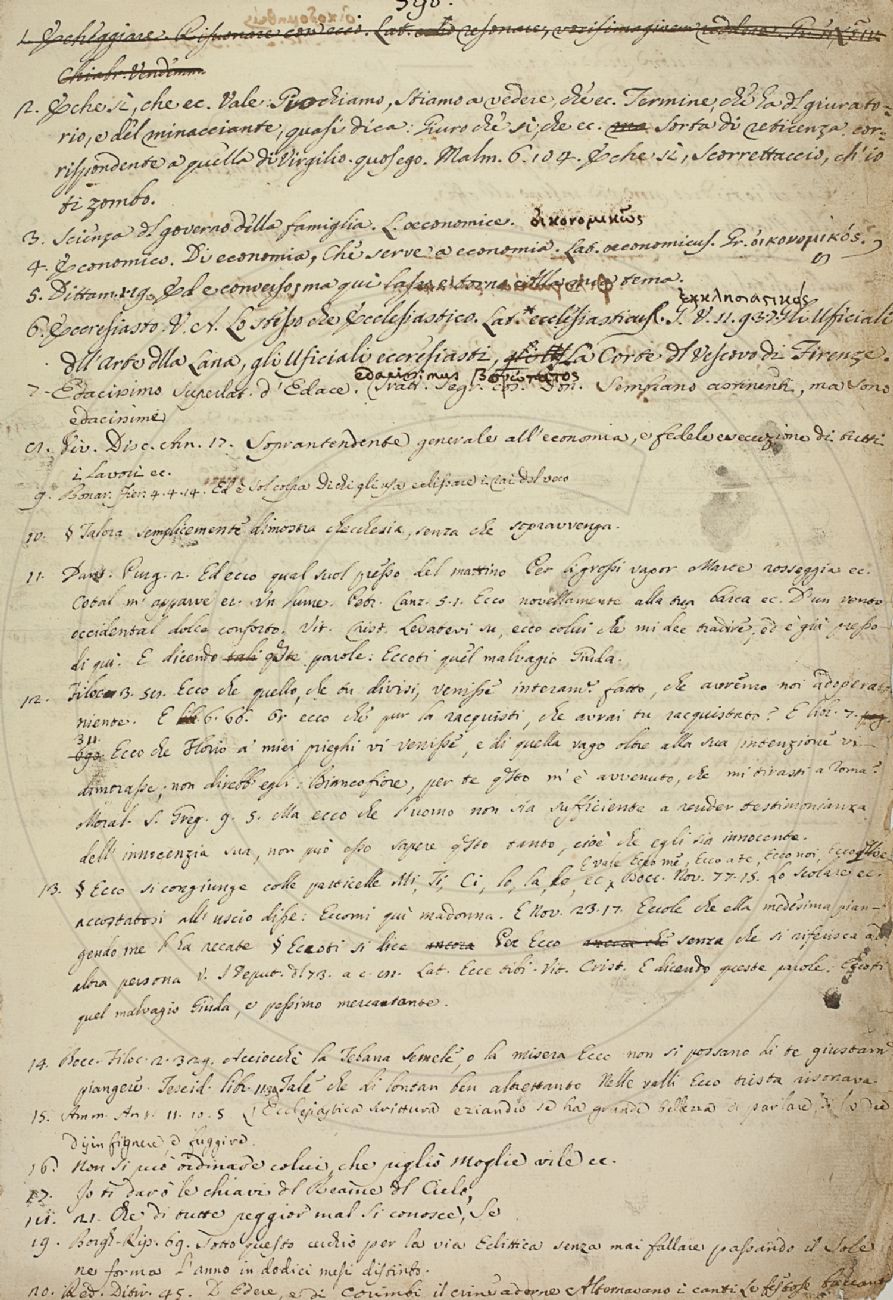 590.
1. Echeggiare. Risuonare con ecci. Lat. resonare, Gr.
Chiabr. Vendemm.
2. E che sì, che ec. Vale Giochiamo, stiamo a vedere, che ec. Termine, che ha del giurato-
rio, e del minacciante, quasi dica: Giuro che sì, che ec. sorta di reticenza cor-
rispondente a quella di Virgilio. quos ego. Malm. 6. 104. E che sì, scorrettaccio, ch' io
ti zombo.
3. Scienza del governo della famiglia. L. oeconomice. οἰκονομικῶς
4. Economico. Di economia, Che serve a economia. Lat. oeconomicus. Gr. οἰκονομικός.
5. Dittam. E d e converso, ma qui lascio e torno alla tema.
ἐκκλησιαστικός
6. Eccresiasto. V. A. Lo stesso che Ecclesiastico. Lat. ecclesiasticus. G. V. 11. 93. 7. Gli Uficiali
dell' Arte della Lana, gli Uficiali eccresiasti, la Corte del Vescovo di Firenze.
edacissimus
7. Edacissimo superlat. d' Edace. Tratt. Segr. cos. Don. Sempiano astinenti, ma sono
edacissimi
8. Viv. Disc. Arn. 17. Soprantendente generale all' economia, e fedele esecuzione di tutti
i lavori ec.
9. Bonar. Fier. 4. 4. 14. Ed è sol colpa di chi gli usa eclissare i rai del vero
10. § Talora semplicemente dimostra checchesia, senza che sopravvenga.
11. Dant. Purg. 2. Ed ecco qual suol presso del mattino Per li grossi vapor Marte rosseggia ec.
Cotal m' apparve ec. Un lume. Petr. Canz. 5. 1. Ecco novellamente alla tua barca ec. D' un vento
occidental dolce conforto. Vit. Crist. Levatevi su, ecco colui che mi dee tradire, ed è già presso
di qui. E dicendo queste parole: Eccoti quel malvagio Giuda.
12. Filoc. 3. Ecco che quello, che tu divisi, venisse interam. fatto, che avremmo noi adoperato
niente. E 6. 60. Or ecco che pur la racquisti, che avrai tu racquistato? E libr. 7.
311. Ecco che Florio a' miei prieghi vi venisse, e di quella vago oltre alla sua intenzione vi
dimorasse; non direbb' egli: Biancofiore, per te questo m' è avvenuto, che mi tirasti a Roma?
Moral. S. Greg. 9. 5. Ma ecco che l' uomo non sia sufficiente a render testimonianza
dell' innocenzia sua, non può esso sapere questo tanto, cioè che egli sia innocente.
E vale Ecco me, Ecco a te, Ecco noi, Ecco
13. § Ecco si congiunge colle particelle Mi, Ti, Ci, lo, la, le, ec. Bocc. Nov. 77. 15. Lo scolare ec.
accostatosi all' uscio disse: Eccomi qui madonna. E Nov. 23. 17. Eccole che ella medesima pian-
gendo me l' ha recate § Eccoti si dice Per Ecco senza che si riferisca ad
altra persona V. i Deput. del 73. a c. Lat. Ecce tibi. Vit. Crist. E dicendo queste parole: Eccoti
quel malvagio Giuda, e pessimo mercatante.
14. Bocc. Filoc. 2. 329. Acciocchè la Tebana Semele, o la misera Ecco non si possano di te giustam.
piangere. Teseid. libr. 11. Tale che di lontan ben altrettanto Nelle valli Ecco trista risonava.
15. Amm. Ant. 11. 10. 5 Ecclesiastica scrittura eziandio se ha grande bellezza di parlare,
d'infignere, e fuggire.
16. Non si può ordinare colui, che pigliò moglie vile ec.
17. Io ti darò le chiavi del Reame del Cielo,
18. 21. Che di tutte peggior mal si conosce, Se
19. Borgh. Rip. 69. Sotto questo cerchio per la via Eclittica senza mai fallare passando il Sole
ne forma l' anno in dodici mesi distinto.
20. Red. Ditir. 45. D' Edere, e di Corimbi il crine adorne Alternavano i canti Le festose baccant